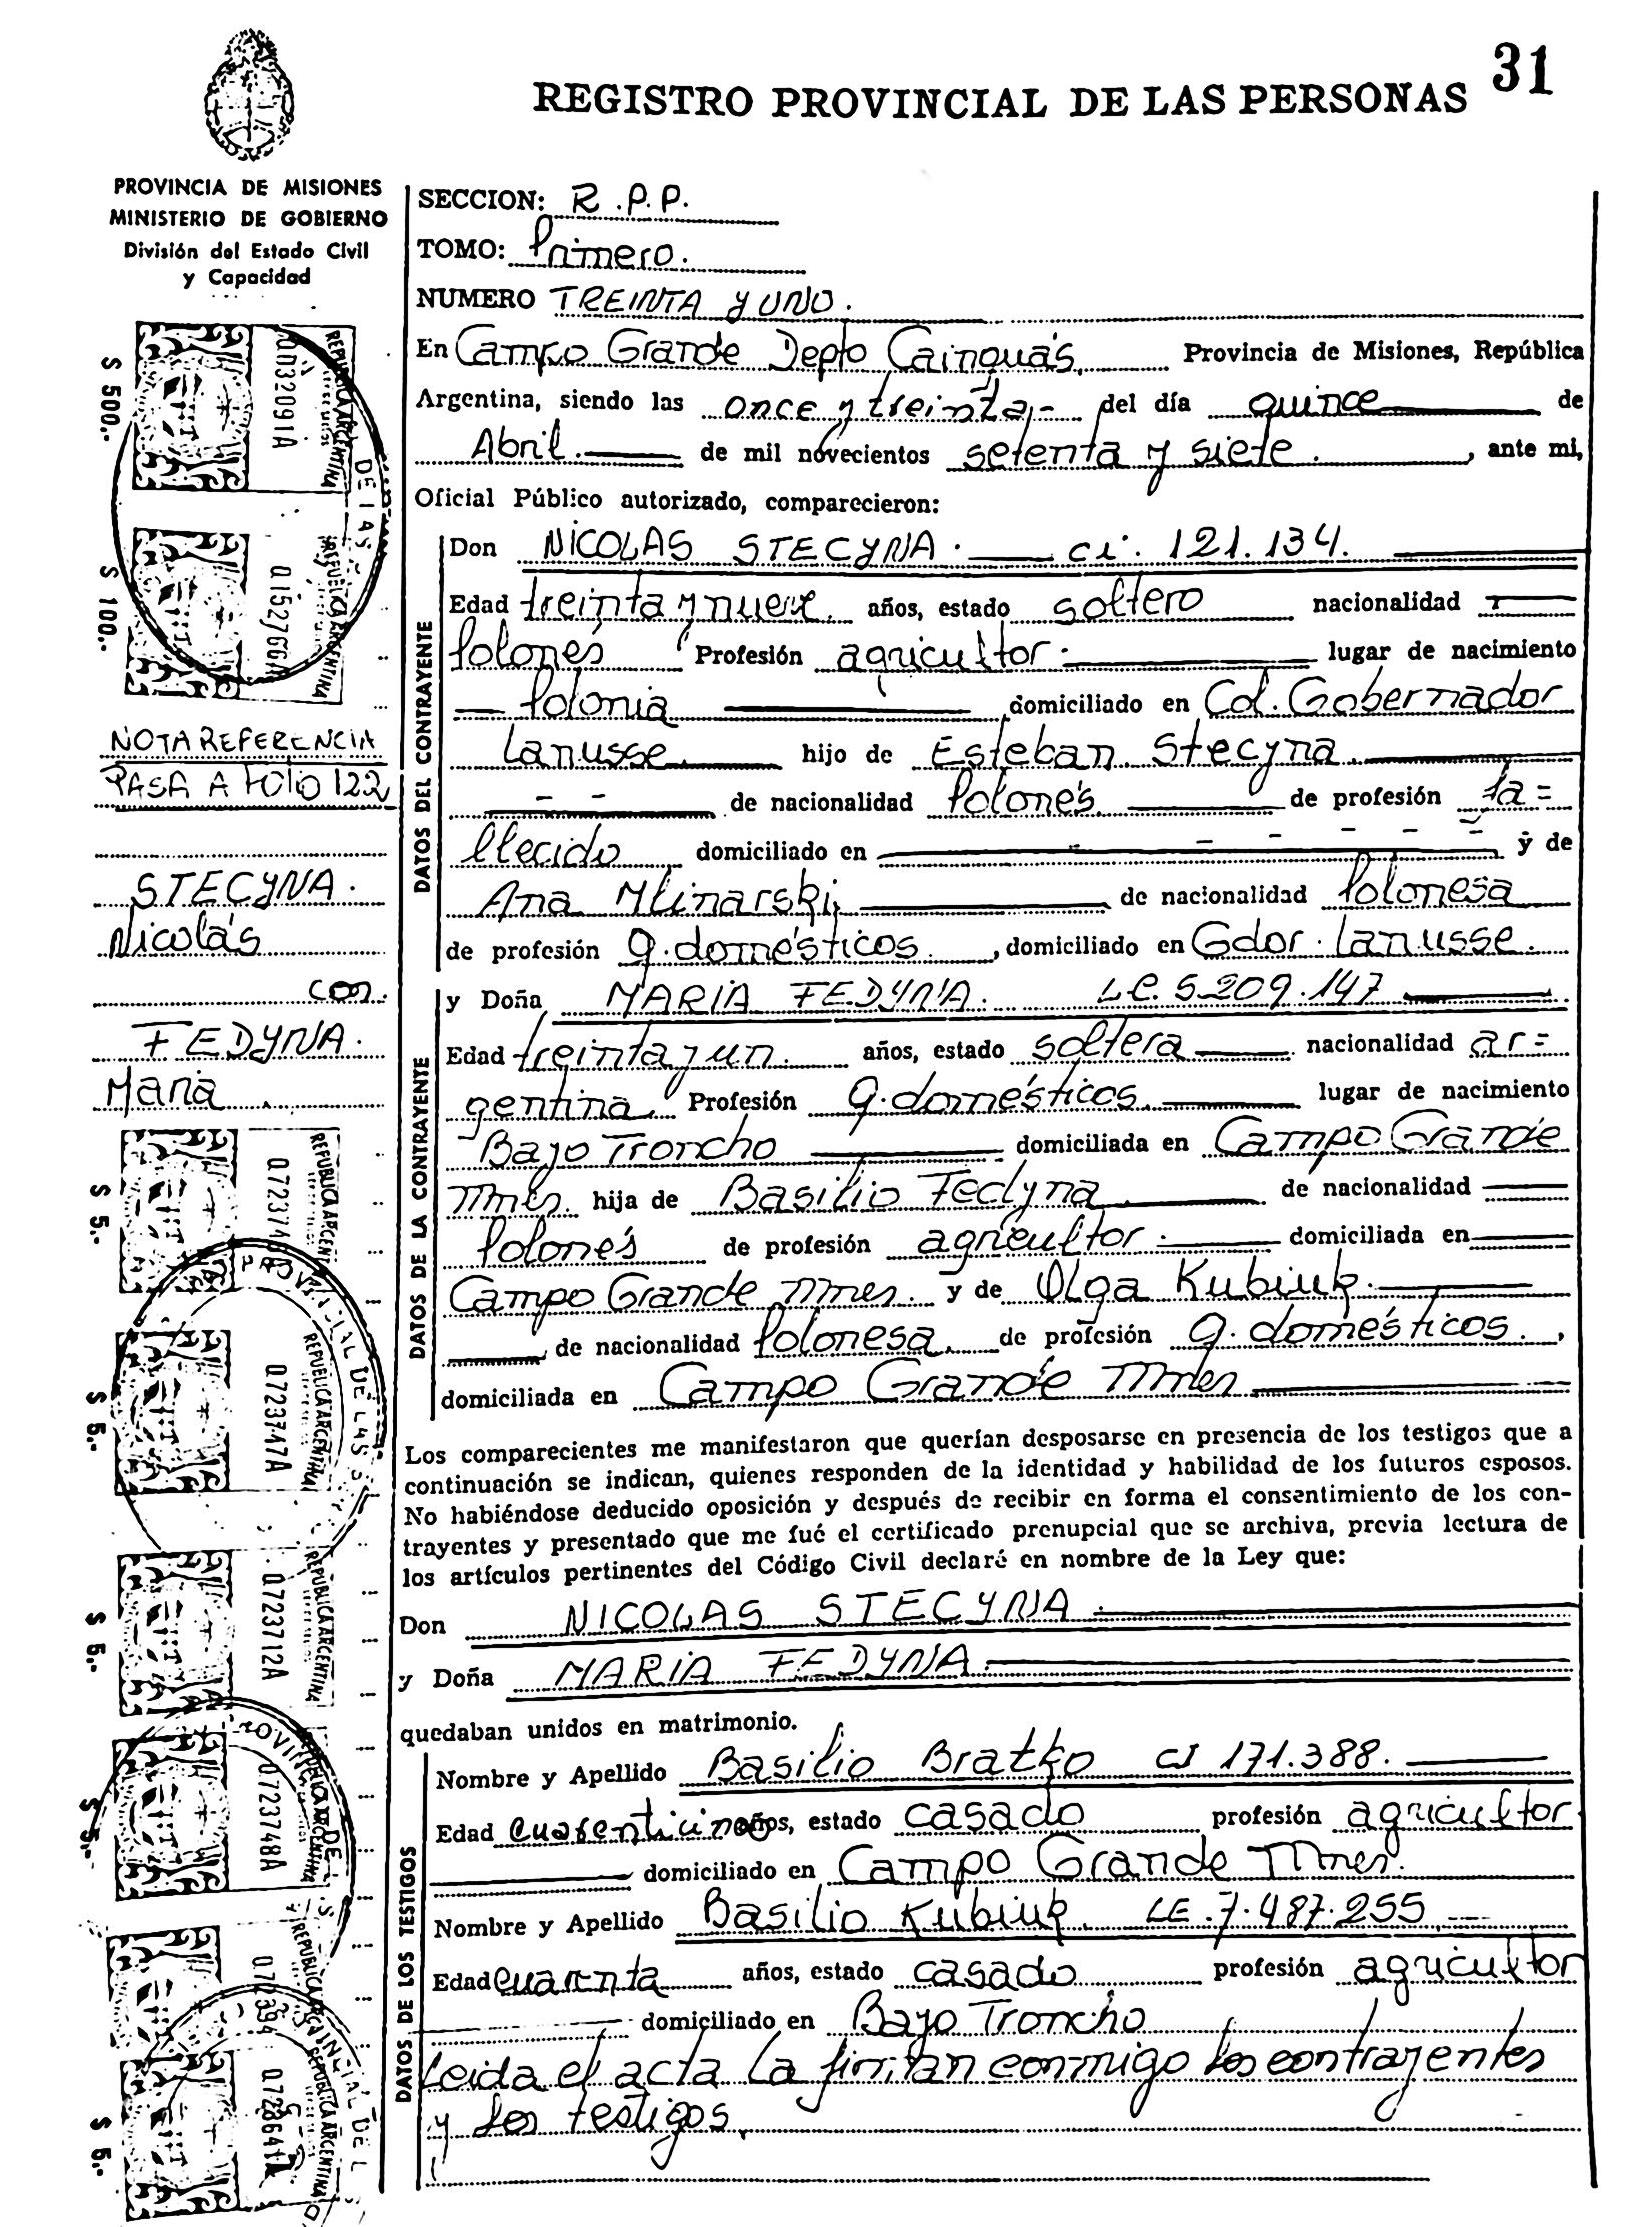 31
REGISTRO PROVINCIAL DE LAS PERSONAS
PROVINCIA DE MISIONES
MINISTERIO DE GOBIERNO
División del Estado Civil
y Capacidad
SECCION: R.P.P.
TOMO: Primero.
NUMERO TREINTA y UNO.
En Campo Grande Depto Cainguás, Provincia de Misiones, República
Argentina, siendo las once y treinta,- del día quince de
Abril. de mil novecientos setenta y siete. , ante mi,
Oficial Público autorizado, comparecieron:
DATOS DEL CONTRAYENTE
Don NICOLAS STECYNA. — ci. 121.134.
Edad treinta y nueve. años, estado soltero nacionalidad
Polonés Profesión agricultor. lugar de nacimiento
— Polonia domiciliado en Col. Gobernador
Lanusse. hijo de Esteban Stecyna.
- - de nacionalidad Polonés. de profesión fa=
llecido domiciliado en - - - - - - y de
Ana Mlinarski, de nacionalidad Polonesa
de profesión q. domésticos. , domiciliado en Gdor. Lanusse.
DATOS DE LA CONTRAYENTE
y Doña MARIA FEDYNA. L.C. 5.209.147
Edad treinta y un. años, estado soltera nacionalidad ar=
gentina, Profesión q. domésticos. lugar de nacimiento
Bajo Troncho domiciliada en Campo Grande
Mnes. hija de Basilio Fedyna. de nacionalidad
Polonés de profesión agricultor. domiciliada en
Campo Grande Mnes. y de Olga Kubiuk.
, de nacionalidad Polonesa, de profesión q. domésticos. ,
domiciliada en Campo Grande Mnes
Los comparecientes me manifestaron que querían desposarse en presencia de los testigos que a
continuación se indican, quienes responden de la identidad y habilidad de los futuros esposos.
No habiéndose deducido oposición y después de recibir en forma el consentimiento de los con-
trayentes y presentado que me fué el certificado prenupcial que se archiva, previa lectura de
los artículos pertinentes del Código Civil declaré en nombre de la Ley que:
Don NICOLAS STECYNA.
y Doña MARIA FEDYNA.
quedaban unidos en matrimonio.
DATOS DE LOS TESTIGOS
Nombre y Apellido Basilio Bratko CI 171.388.
Edad años, estado casado profesión agricultor
domiciliado en Campo Grande Mnes.
Nombre y Apellido Basilio Kubiuk. LE. 7.487.255
Edad cuarenta años, estado casado profesión agricultor
domiciliado en Bajo Troncho
Leida el acta la firman conmigo los contrayentes
y los testigos.
$ 500.-
REPUBLICA ARGENTINA
$ 100.-
0152766A
REPUBLICA ARGENTINA
NOTA REFERENCIA
PASA A FOLIO 122
STECYNA.
Nicolás
con.
FEDYNA.
Maria
$ 5.-
$ 5.-
0723747A
REPUBLICA ARGENTINA
$ 5.-
0723712A
REPUBLICA ARGENTINA
$ 5.-
0723748A
$ 5.-
REPUBLICA ARGENTINA